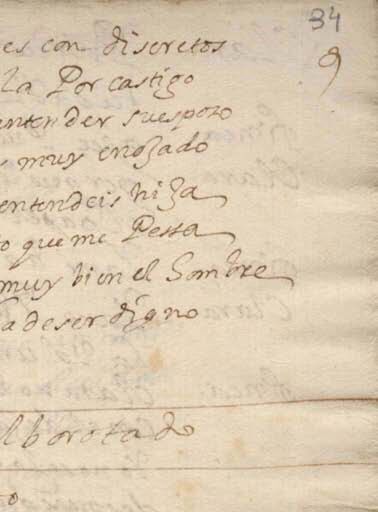 34
9
es con discretos
la Por castigo
entender su esposo
muy enozado
entendeis hiza
o que me Pessa
muy bien el Sombre
a de ser digno
lborotado
o